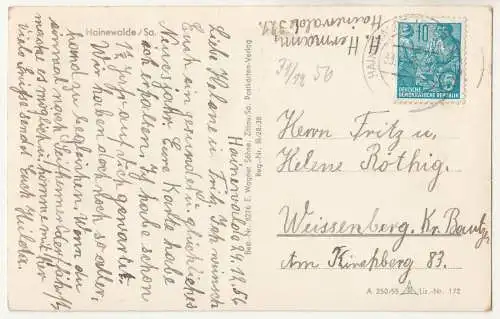 Hainewalde/Sa.
Hainewalde 24.12.56
Liebe Helene u. Fritz. Ich wünsch
Euch ein gesundes u. glückliches
Neues Jahr. Eure Karte habe
ich erhalten. Ich habe schon
1½ Jahr auf dich gewartet.
Wir haben doch noch so allerhand
zu begleichen. Wenn du
mache es möglich u. komme mit
viele Grüße sendet Euch Hilda.
Bestl.-Nr. 9274 E. Wagner Söhne, Zittau/Sa. Postkarten-Verlag
Reg.-Nr. III/28-38
H. Hermann
Hainewalde 321
31/12 56
10
DEUTSCHE
DEMOKRATISCHE REPUBLIK
Herrn Fritz u.
Helene Röthig.
Weissenberg. Kr. Bautzen
Am Kirchberg 83.
A 250/55 Liz.-Nr. 172